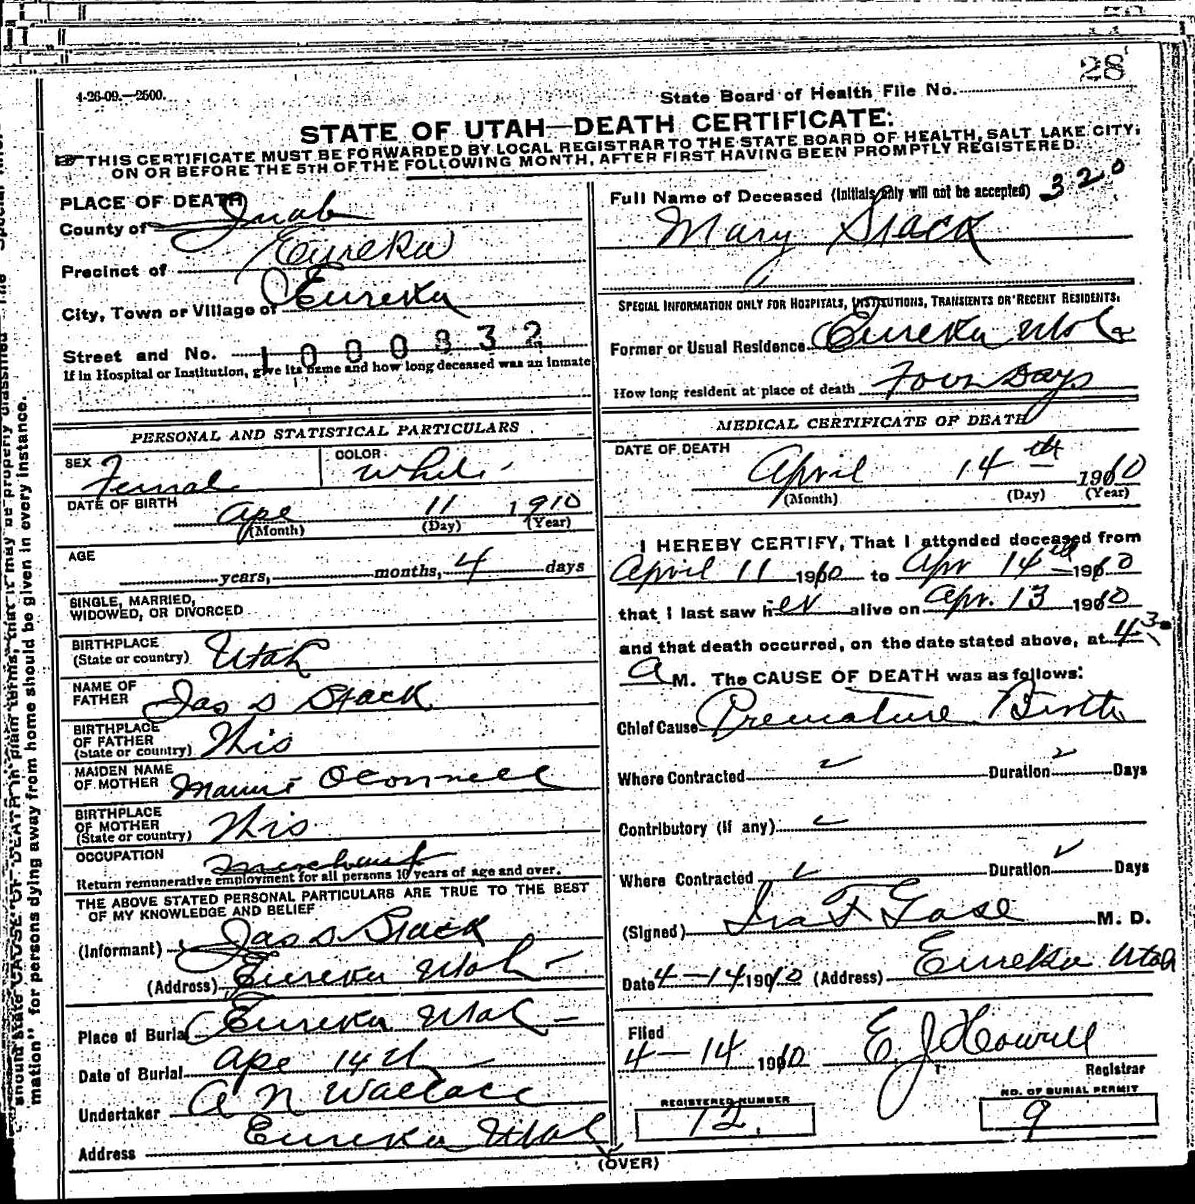 28
4-26-09.—2500.
State Board of Health File No.
STATE OF UTAH—DEATH CERTIFICATE.
THIS CERTIFICATE MUST BE FORWARDED BY LOCAL REGISTRAR TO THE STATE BOARD OF HEALTH, SALT LAKE CITY,
ON OR BEFORE THE 5TH OF THE FOLLOWING MONTH, AFTER FIRST HAVING BEEN PROMPTLY REGISTERED.
PLACE OF DEATH
County of Juab
Precinct of Eureka
City, Town or Village of Eureka
Street and No. 1000832
If in Hospital or Institution, give its name and how long deceased was an inmate
PERSONAL AND STATISTICAL PARTICULARS
SEX Female COLOR White
DATE OF BIRTH Ape 11 1910
(Month) (Day) (Year)
AGE years, months, 4 days
SINGLE, MARRIED,
WIDOWED, OR DIVORCED
BIRTHPLACE
(State or country) Utah
NAME OF
FATHER Jas S Stack
BIRTHPLACE
OF FATHER
(State or country) This
MAIDEN NAME
OF MOTHER Mamie Oconnell
BIRTHPLACE
OF MOTHER
(State or country) This
OCCUPATION merchant
Return remunerative employment for all persons 10 years of age and over.
THE ABOVE STATED PERSONAL PARTICULARS ARE TRUE TO THE BEST
OF MY KNOWLEDGE AND BELIEF
(Informant) Jas S Stack
(Address) Eureka Utah
Place of Burial Eureka Utah
Date of Burial Ape 14th
Undertaker A N Wallace
Address Eureka Utah
Full Name of Deceased (Initials only will not be accepted) 320
Mary Stack
SPECIAL INFORMATION ONLY FOR HOSPITALS, INSTITUTIONS, TRANSIENTS OR RECENT RESIDENTS:
Former or Usual Residence Eureka Utah
How long resident at place of death Four Days
MEDICAL CERTIFICATE OF DEATH
DATE OF DEATH
April 14th 1910
(Month) (Day) (Year)
I HEREBY CERTIFY, That I attended deceased from
April 11 1910 to Apr 14th 1910
that I last saw her alive on Apr. 13 1910
and that death occurred, on the date stated above, at 4 30
A M. The CAUSE OF DEATH was as follows:
Chief Cause Premature Birth
Where Contracted Duration Days
Contributory (if any)
Where Contracted Duration Days
(Signed) Ira F Gose M. D.
Date 4-14 1910 (Address) Eureka Utah
Filed
4-14 1910 E J Howell
Registrar
REGISTERED NUMBER
12.
NO. OF BURIAL PERMIT
9
(OVER)
should state CAUSE OF DEATH in plain terms, that it may be properly classified. The "Special Infor-
mation" for persons dying away from home should be given in every instance.